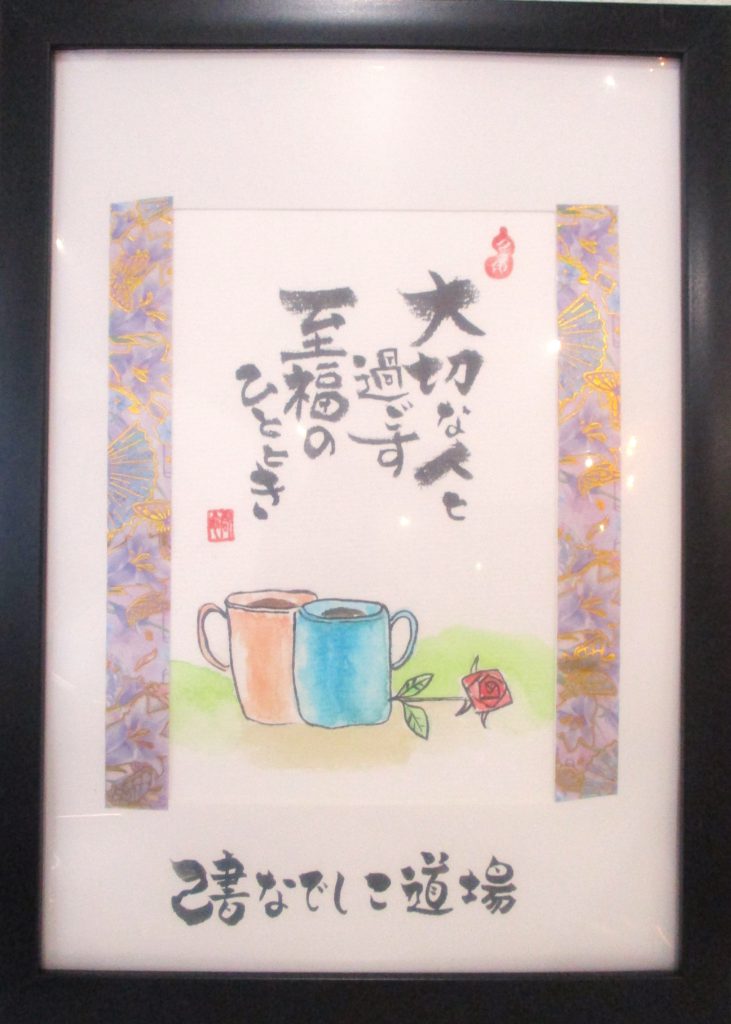 大切な人と
過ごす
至福の
ひととき
己書なでしこ道場